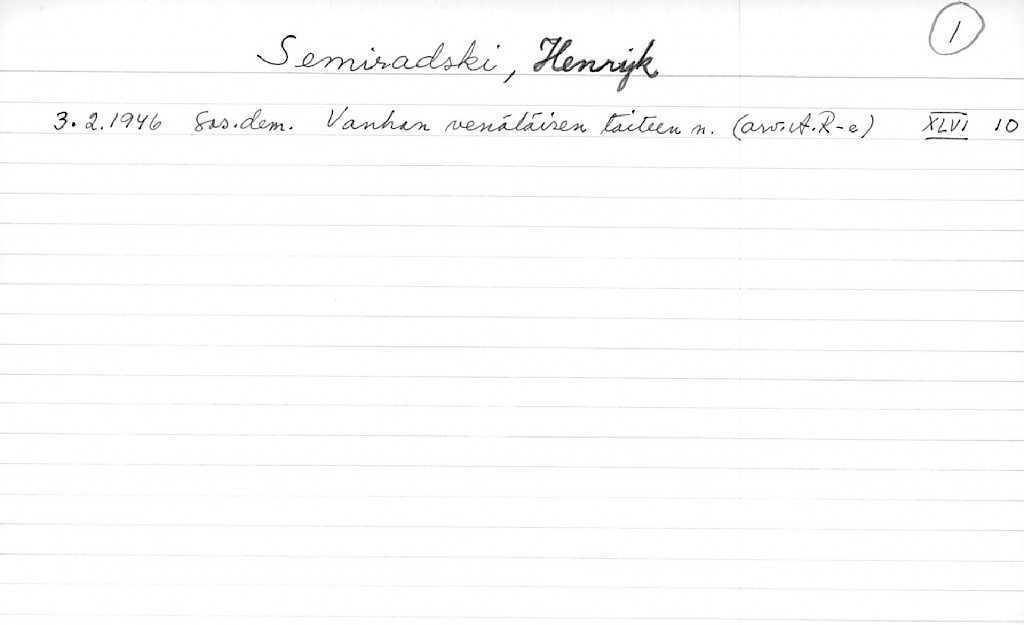 1
Semiradski, Henryk
3.2.1946 Sos.dem. Vanhan venäläisen taiteen n. (arv. A.R-a) XLVI 10